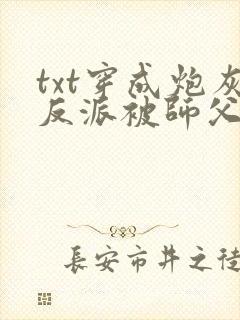 txt穿成炮灰
反派被師父
長安市井之徒